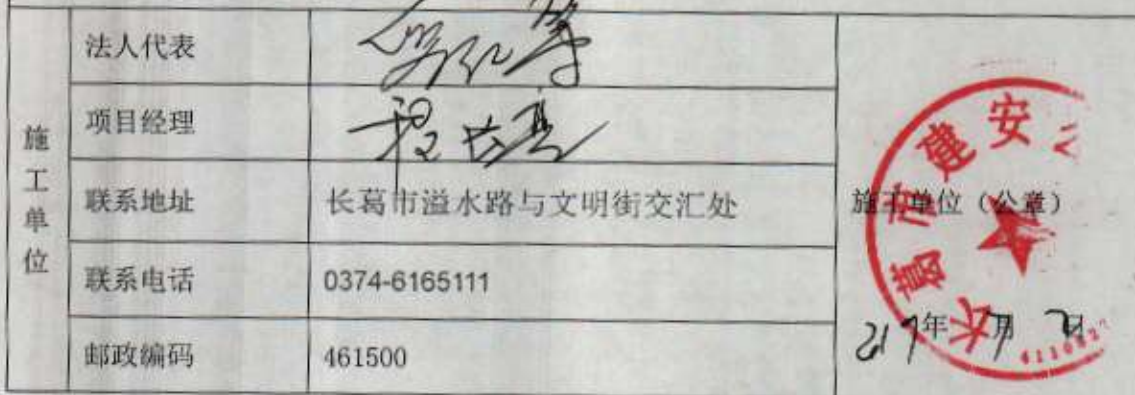 施工单位
法人代表
项目经理
联系地址 长葛市溢水路与文明街交汇处
联系电话 0374-6165111
邮政编码 461500
施工单位（公章）
年 月 日
长葛市建安